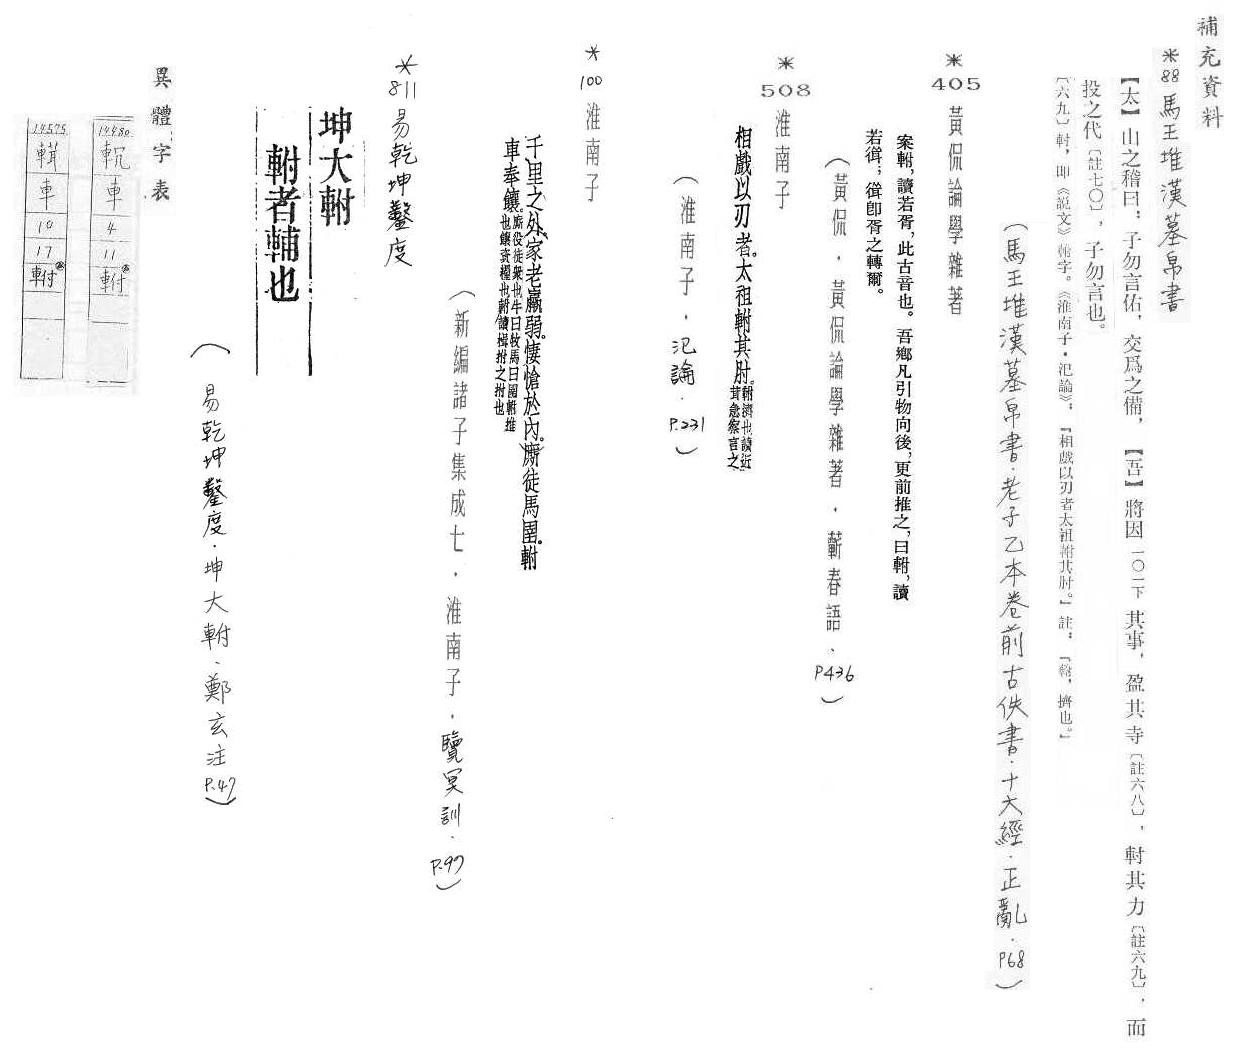 補充資料
*88 馬王堆漢墓帛書
【太】山之稽曰：子勿言佑，交爲之備，【吾】將因一〇一下其事，盈其寺〔註六八〕，軵其力〔註六九〕，而
投之代〔註七〇〕，子勿言也。
〔六九〕軵，即《説文》軵字。《淮南子·氾論》：『相戲以刃者太祖軵其肘。』註：『軵，擠也。』
（馬王堆漢墓帛書·老子乙本卷前古佚書·十大經·正亂·P68）
*405
黃侃論學雜著
案軵，讀若胥，此古音也。吾鄉凡引物向後，更前推之，曰軵，讀
若䇓；䇓卽胥之轉爾。
（黃侃．黃侃論學雜著．蘄春語、P436）
*508
淮南子
相戲以刃者。太祖軵其肘。軵濟也讀近
茸急察言之
（淮南子．氾論．P.231）
*100 淮南子
千里之外。家老羸弱。悽愴於內。廝徒馬圉。軵
車奉饟。廝役徒衆也牛曰牧馬曰圉軵推
也饟資糧也軵讀楫拊之拊也
（新編諸子集成七．淮南子．覽冥訓．P.97）
*811 易乾坤鑿度
坤大軵
軵者輔也
（易乾坤鑿度．坤大軵、鄭玄注P.47）
異體字表
14480
車
4
11
軵
14575
輯
車
10
17
軵